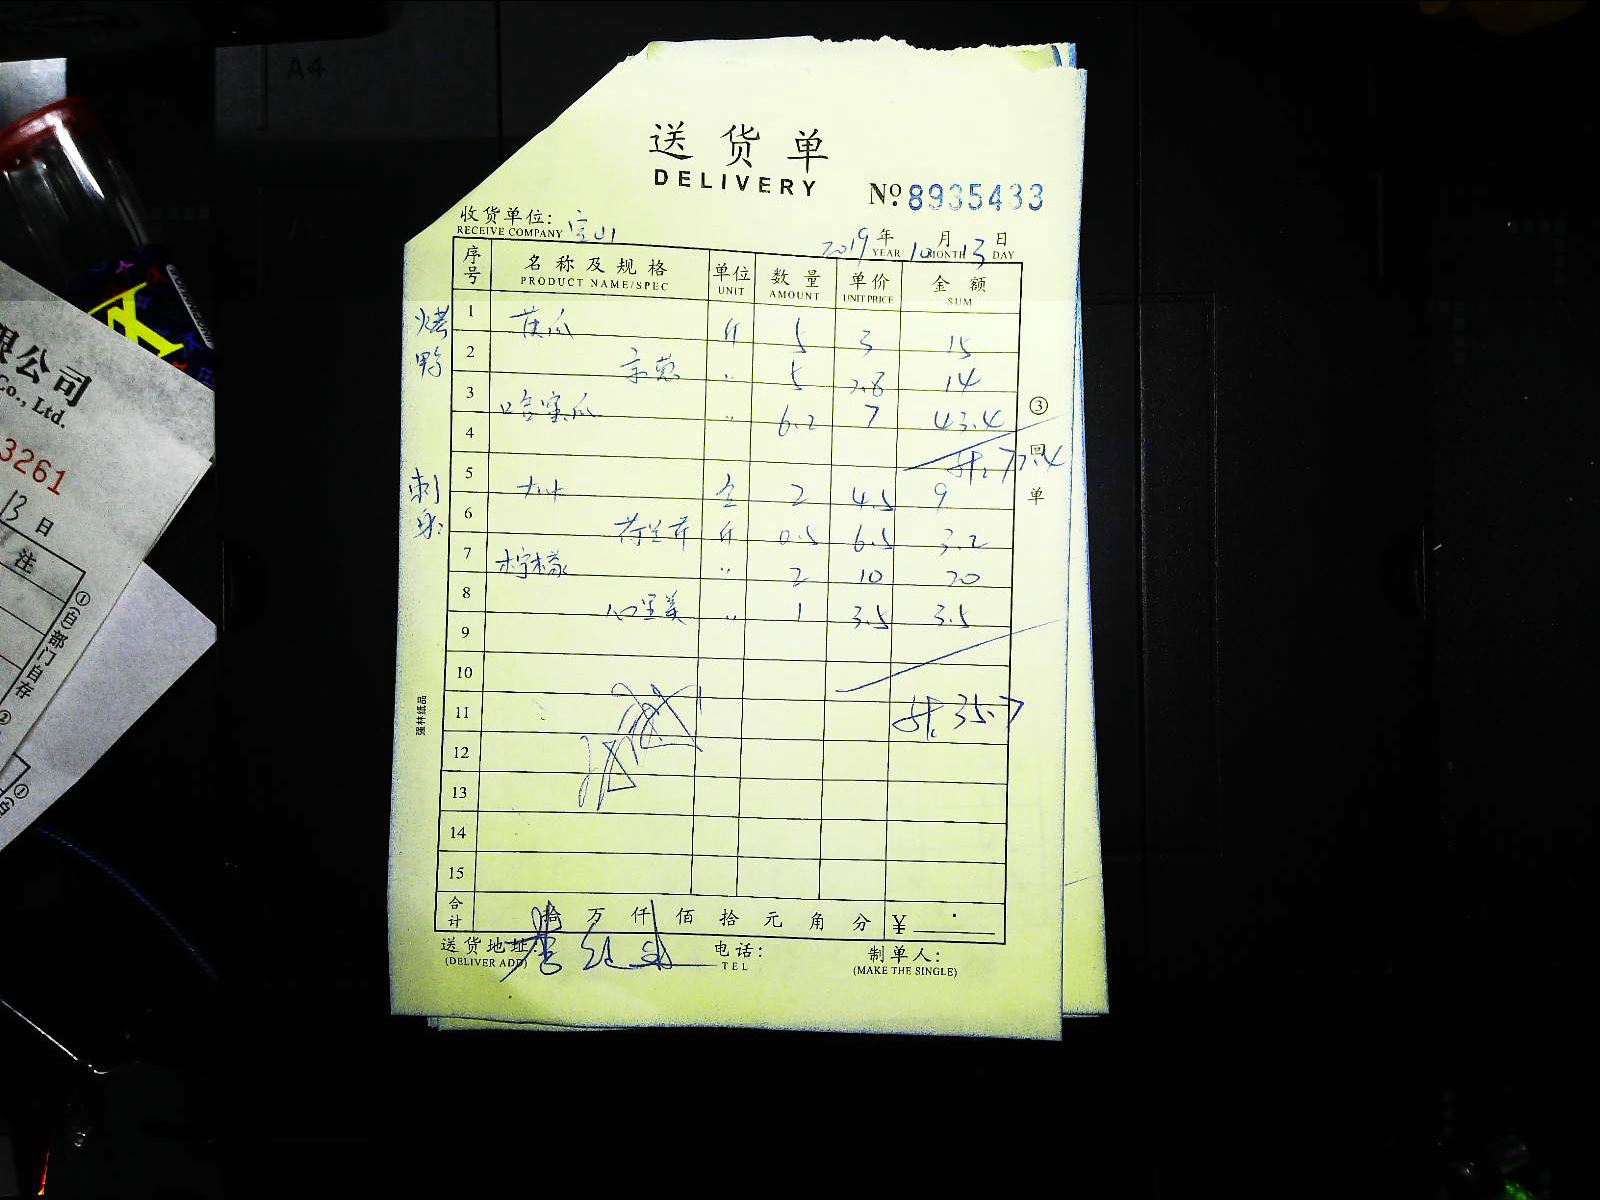 A4
送货单
DELIVERY
№ 8935433
收货单位: 宝山
RECEIVE COMPANY
2019 年 10 月 13 日
YEAR MONTH DAY
序号 名称及规格 单位 数量 单价 金额
PRODUCT NAME/SPEC UNIT AMOUNT UNIT PRICE SUM
烤鸭
1 黄瓜 斤 5 3 15
2 京葱 〃 5 2.8 14
3 哈密瓜 〃 6.2 7 43.4
4 计: 72.4
刺身
5 大叶 合 2 4.5 9
6 荷兰芹 斤 0.5 6.5 3.2
7 柠檬 〃 2 10 20
8 心里美 〃 1 3.5 3.5
9
10
11 计: 35.7
12
13
14
15
合计 拾 万 仟 佰 拾 元 角 分 ¥
送货地址: 电话: 制单人:
(DELIVER ADD) TEL (MAKE THE SINGLE)
③回单
强林纸品
限公司
Co., Ltd.
3261
13 日
注
①(白)部门自存
②
①(白)